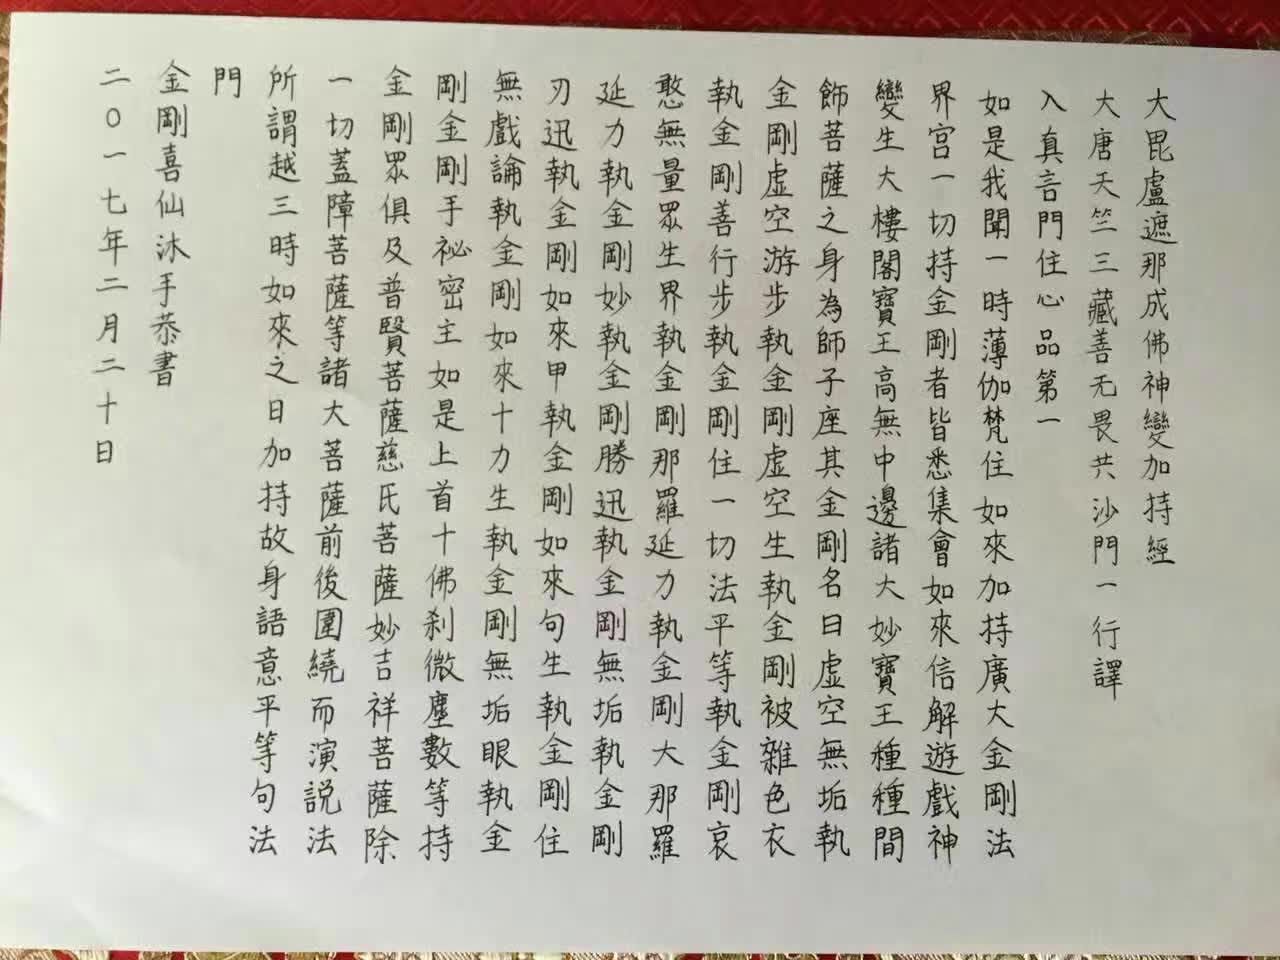 大毘盧遮那成佛神變加持經
大唐天竺三藏善无畏共沙門一行譯
入真言門住心品第一
如是我聞一時薄伽梵住如來加持廣大金剛法
界宮一切持金剛者皆悉集會如來信解遊戲神
變生大樓閣寶王高無中邊諸大妙寶王種種間
飾菩薩之身為師子座其金剛名曰虛空無垢執
金剛虛空游步執金剛虛空生執金剛被雜色衣
執金剛善行步執金剛住一切法平等執金剛哀
憨無量眾生界執金剛那羅延力執金剛大那羅
延力執金剛妙執金剛勝迅執金剛無垢執金剛
刃迅執金剛如來甲執金剛如來句生執金剛住
無戲論執金剛如來十力生執金剛無垢眼執金
剛金剛手祕密主如是上首十佛刹微塵數等持
金剛眾俱及普賢菩薩慈氏菩薩妙吉祥菩薩除
一切蓋障菩薩等諸大菩薩前後圍繞而演説法
所謂越三時如來之日加持故身語意平等句法
門
金剛喜仙沐手恭書
二〇一七年二月二十日